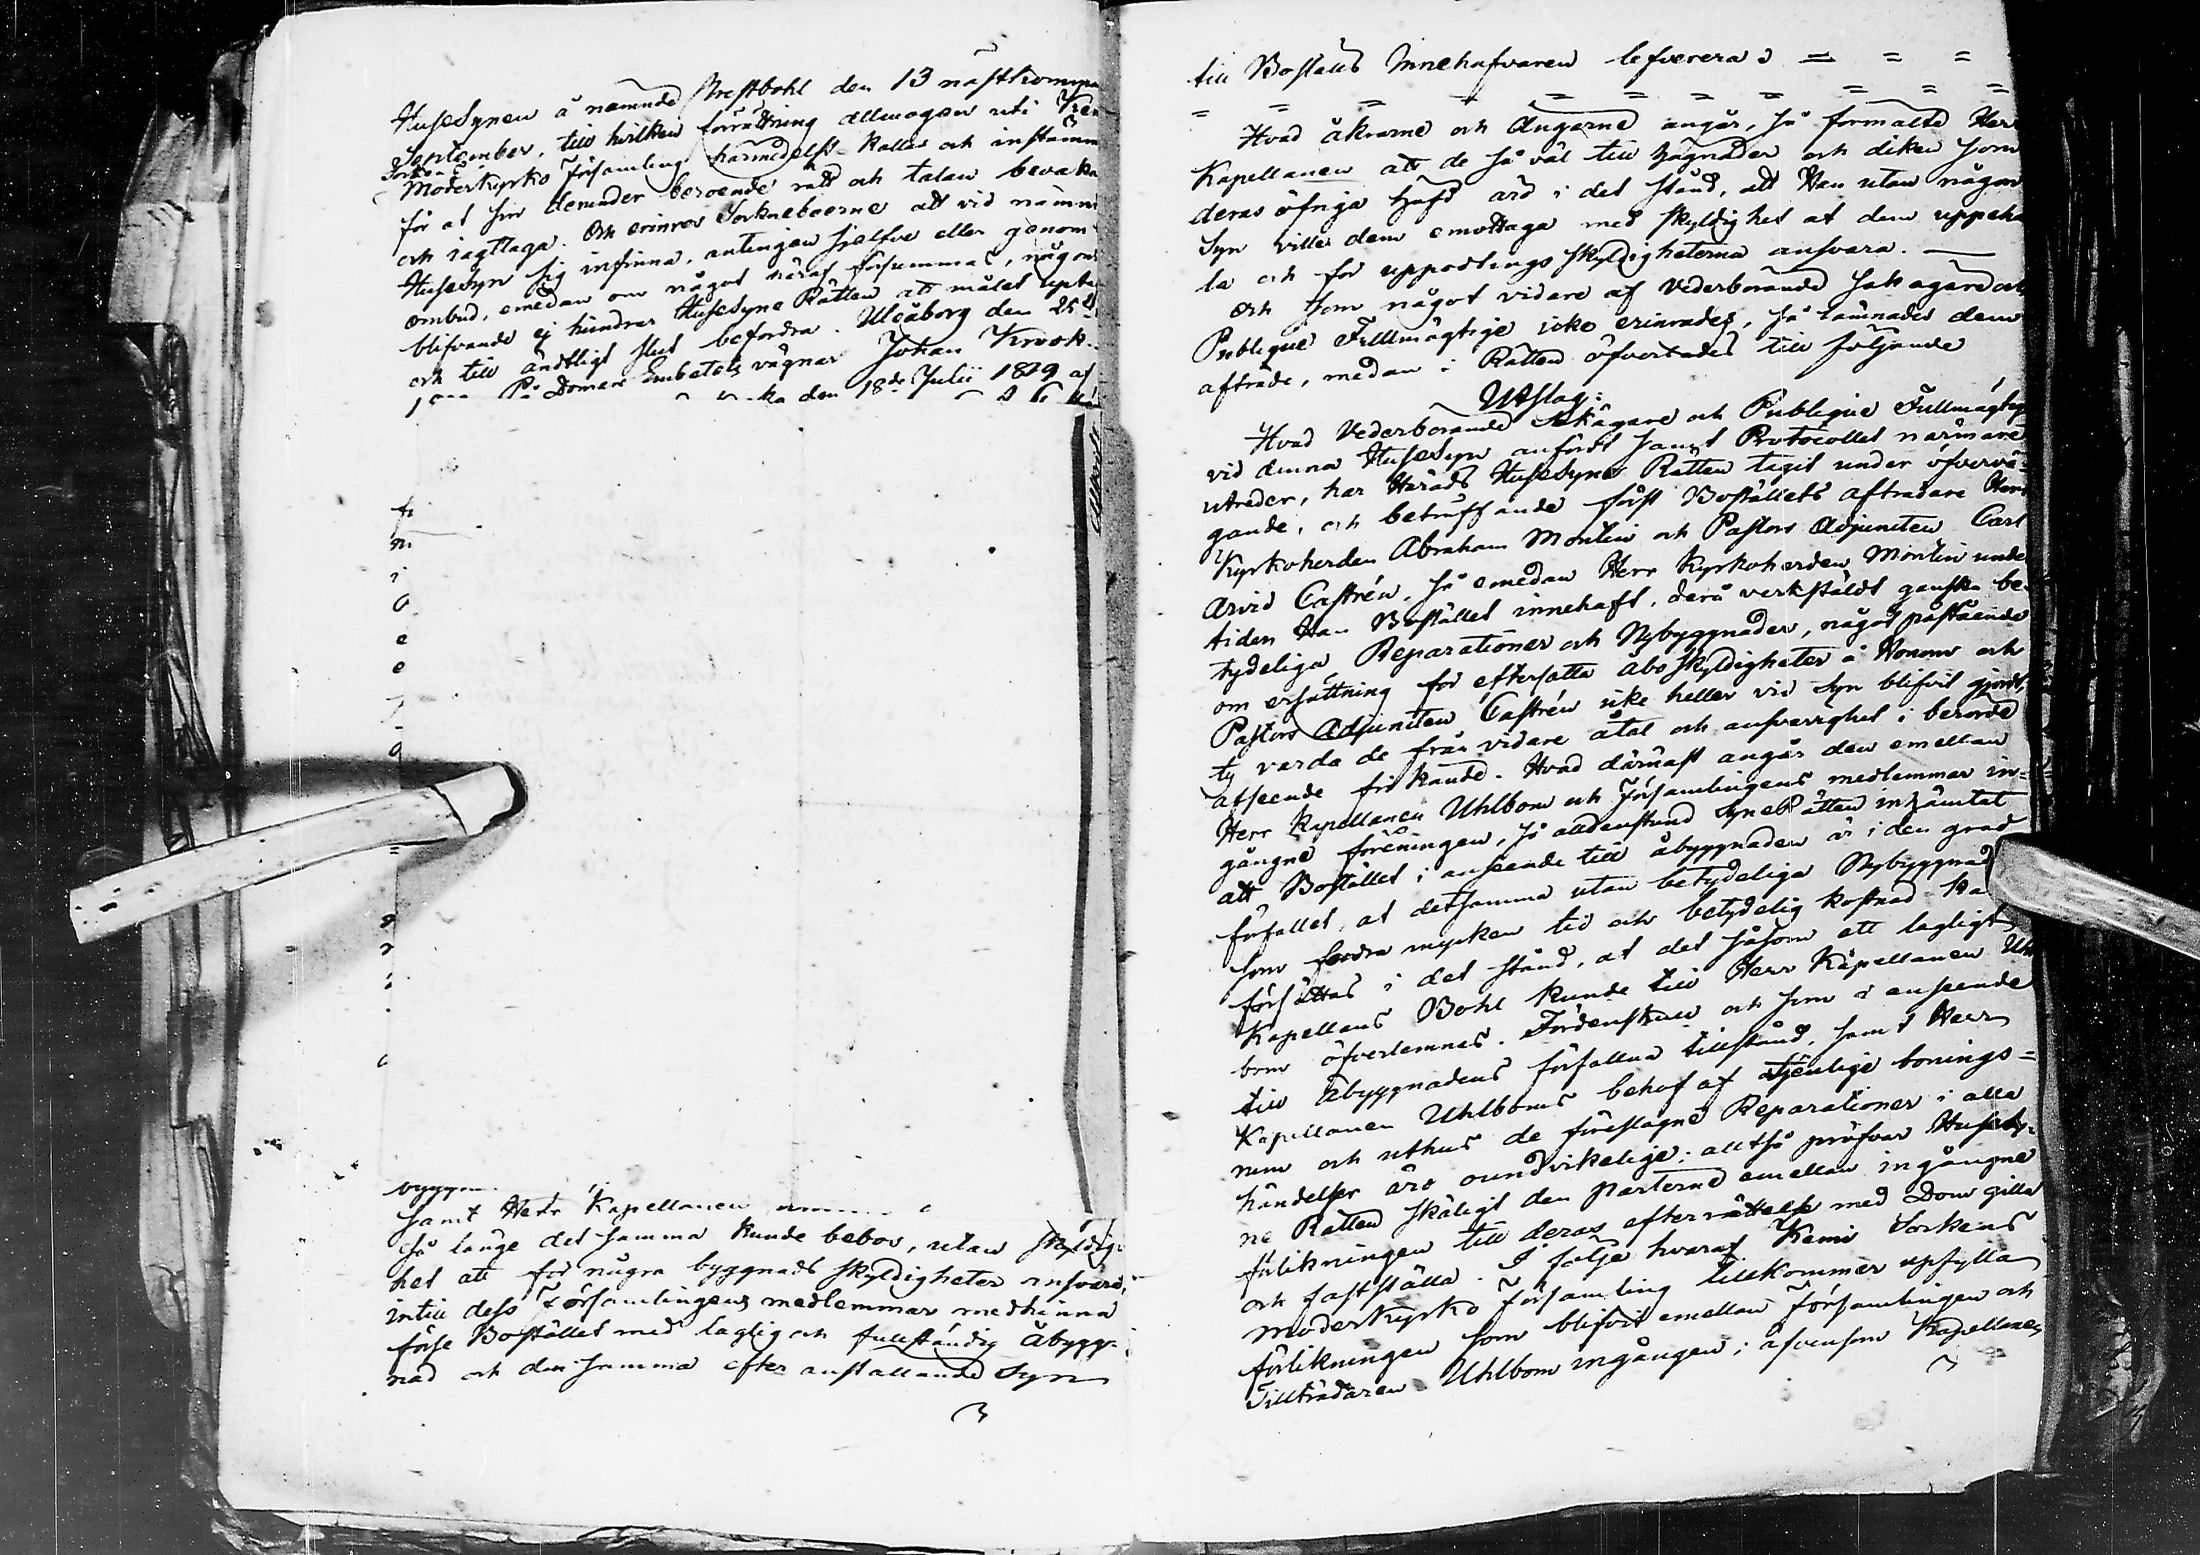 HuseSynen å nämnde Prestbohl den 13 nästkomman
September, till hvilken förrättning allmogen uti Kemi
Sockens
Moderkyrko Församling harmedelst kallas och instämm
för at sin derunder beroende rätt och talan bevaka
och iagttaga. Och erinres Sockneboerne att vid nämn
HuseSyn sig infinna, antingen sjelfve eller genom
ombud, emedan om något häraf försummas, någon
blifvande ej hindrar HuseSyne Rätten att målet uptaga
och till ändtligt slut befordra. Uleåborg den 25
På Domare Embetets vägnar Johan Krook.
den 18de Julii 1829 af
byggn
samt Herr Kapellanen
så länge det samma kunde bebos, utan skyldig-
het att för några byggnads skyldigheter ansvara,
intill dess Församlingens medlemmar medhinna
förse Bostället med laglig och fullständig åbygg-
nad och den samma efter anstallande Syn
till Boställs Innehafvaren leverera = = =
= = = = = = = = = =
Hvad åkrarne och Ängarne angår, så förmälte Herr
Kapellanen att de så väl till hägnader och diken som
deras öfriga häfd äro i det stånd, att Han utan någon
Syn ville dem emottaga med skyldighet at dem uppehål
la och för uppodlings skyldigheterna ansvara. —
Och som något vidare af Vederbörande Sakägare och
Publique Fullmägtige icke erinrades, så lämnades dem
afträde, medan i Rätten öfverlades till följande
Utslag:
Hvad Vederbörande Sakägare och Publique Fullmägtige
vid denna HuseSyn anfördt samt Protocollet närmare
utreder, har Härads HuseSyne Rätten tagit under öfvervä-
gande, och beträffande först Boställets afträdare Herr
Kyrkoherden Abraham Montin och Pastors Adjuncten Carl
Arvid Castrén, så emedan Herr Kyrkoherden Montin under
tiden Han Bostället innehaft, derå verkstäldt ganska be-
tydeliga Reparationer och Nybyggnader, något påstående
om ersättning för eftersatta åboskyldigheter å Honom och
Pastors Adjuncten Castrén icke heller vid Syn blifvit gjordt,
ty varda de från vidare åtal och ansvarighet i berörde
afseende frikände. Hvad därnäst angår den emellan
Herr Kapellanen Uhlbom och Församlingens medlemmar in-
gångne föreningen, så alldenstund SyneRätten inhämtat
att Bostället i anseende till åbyggnaden är i den grad
förfallet, at detsamma utan betydeliga Nybyggnad
som fordra mycken tid och betydelig kostnad ka
försättas i det stånd, at det såsom ett lagligt
Kapellans Bohl kunde till Herr Kapellanen Uhl
bom öfverlemnas. Fördenskull och som i anseende
till Åbyggnadens förfallna tillstånd, samt Herr
Kapellanen Uhlboms behof af tjenlige bonings-
rum och uthus de föreslagne Reparationer i alla
händelser äro oundvikelige; alltså pröfvar HuseSy-
ne Rätten skäligt den parterne emellan ingångne
förlikningen till deras efterrättelse med Dom gilla
och fastställa. I följe hvaraf Kemi Sockens
Moderkyrko Församling tillkommer upfylla
förlikningen som blifvit emellan Församlingen och
Tillträdaren Uhlbom ingången; äfvensom Kapellanen